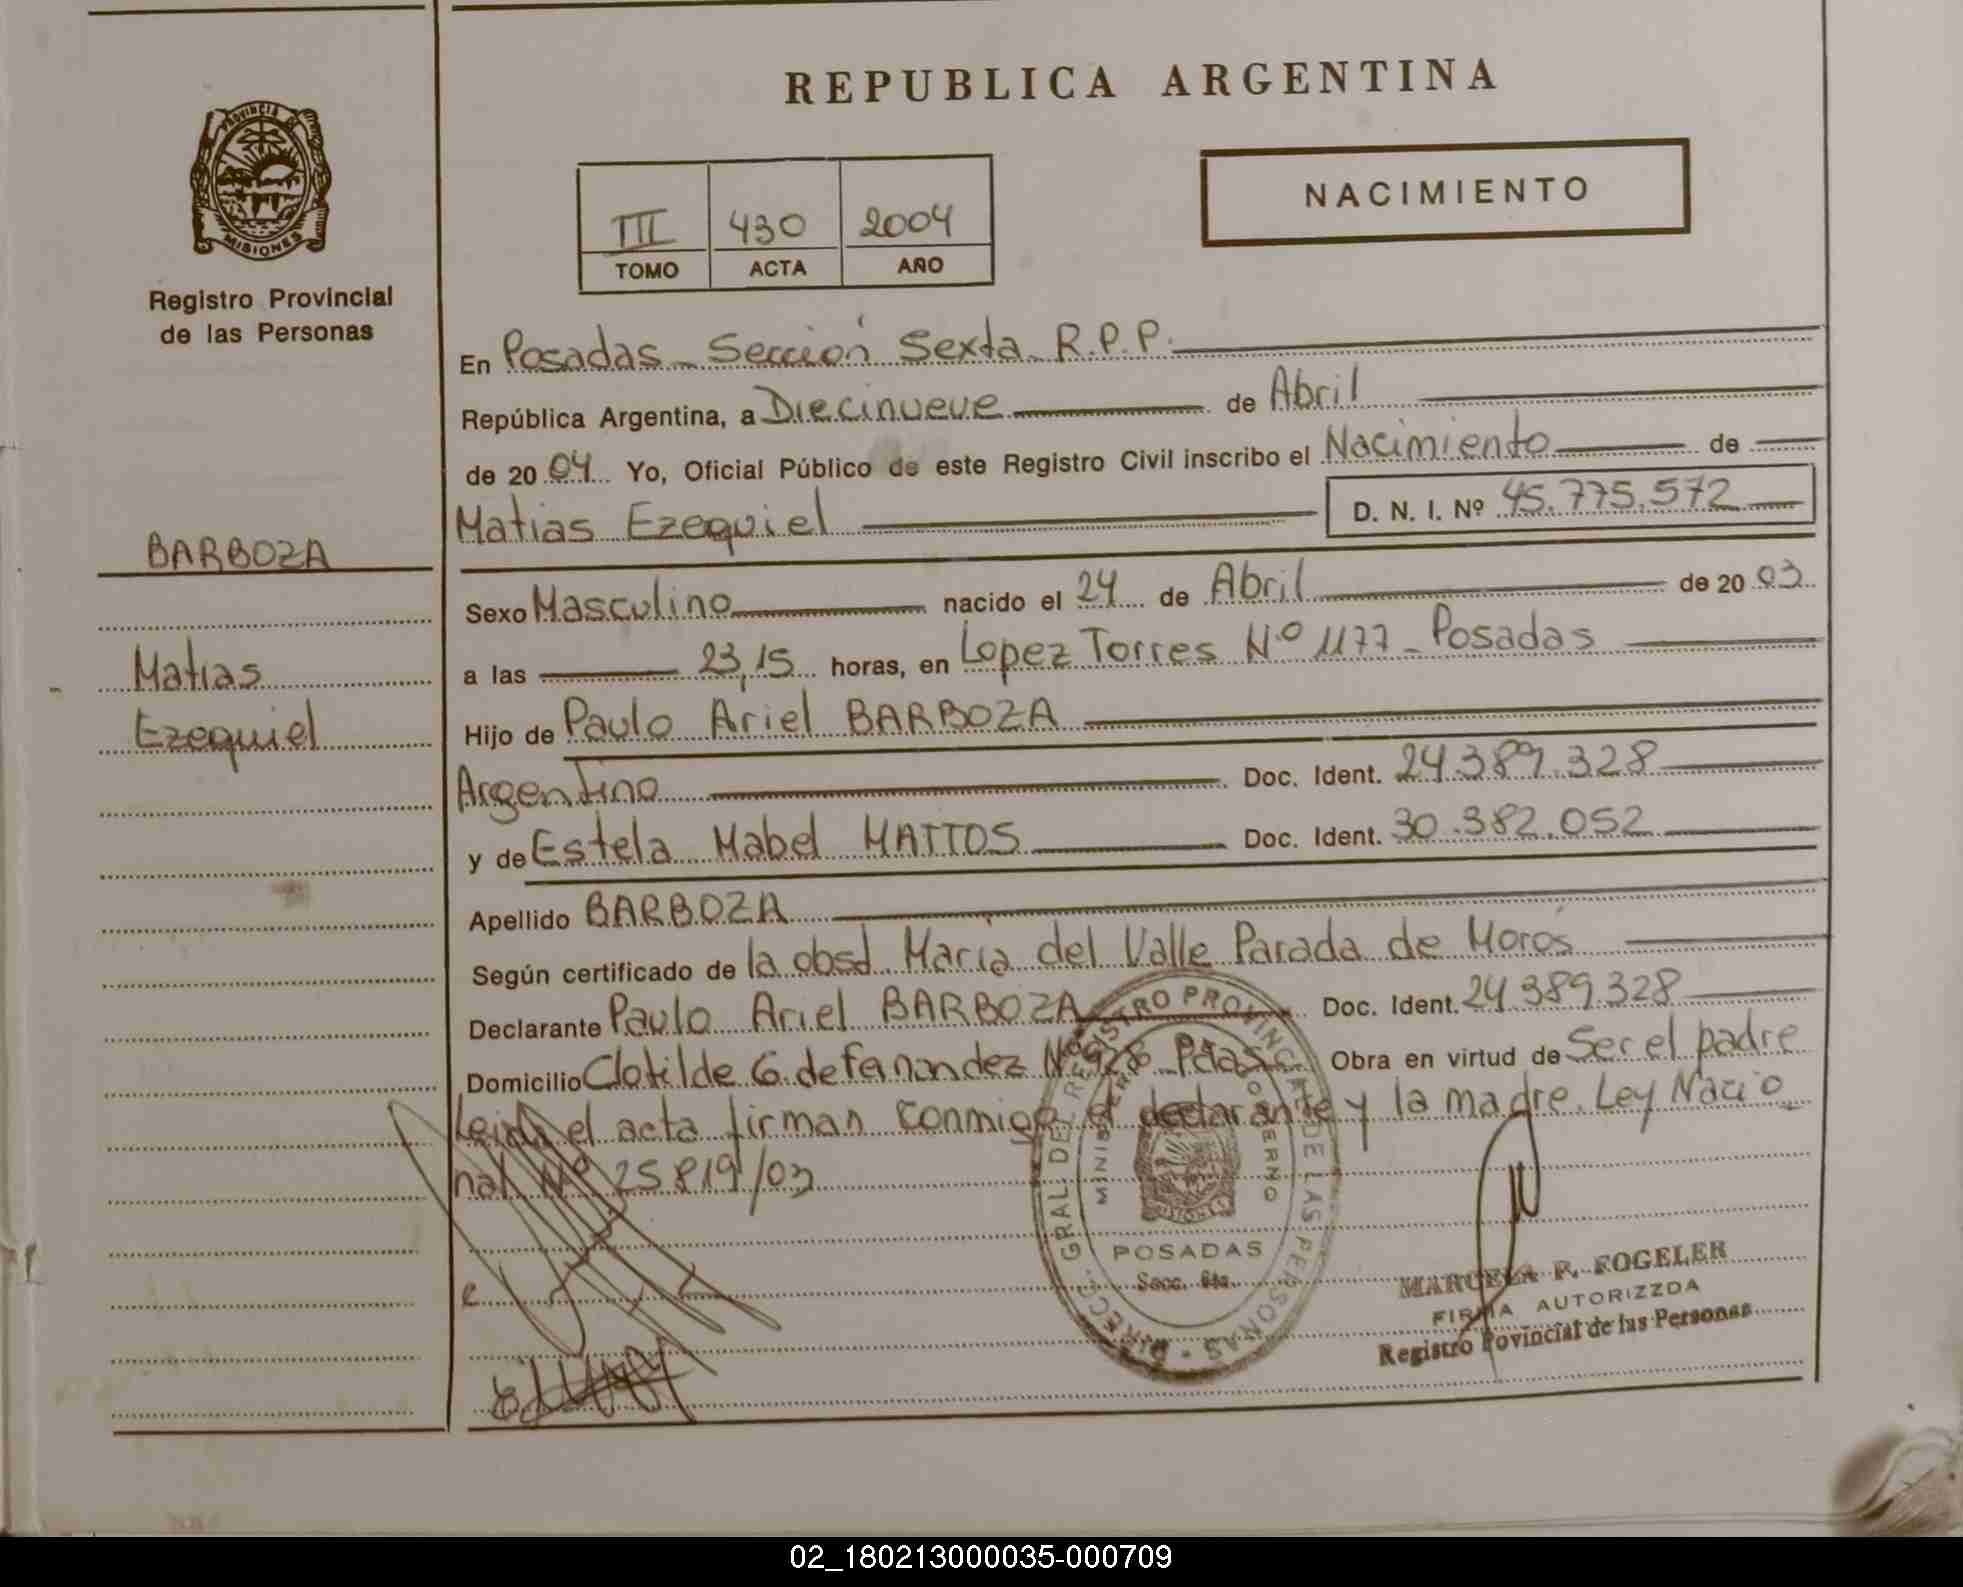 REPUBLICA ARGENTINA
PROVINCIA DE
MISIONES
Registro Provincial
de las Personas
NACIMIENTO
III 430 2004
TOMO ACTA AÑO
En Posadas - Sección Sexta R.P.P.
República Argentina, a Diecinueve de Abril
de 20 04 Yo, Oficial Público de este Registro Civil inscribo el Nacimiento de
Matias Ezequiel D. N. I. Nº 45.775.572
BARBOZA
Matias
Ezequiel
Sexo Masculino nacido el 24 de Abril de 20 03
a las 23,15 horas, en Lopez Torres Nº 1177 - Posadas
Hijo de Paulo Ariel BARBOZA
Argentino Doc. Ident. 24.389.328
y de Estela Mabel MATTOS Doc. Ident. 30.382.052
Apellido BARBOZA
Según certificado de la obsd Maria del Valle Parada de Moros
Declarante Paulo Ariel BARBOZA Doc. Ident. 24.389.328
Domicilio Clotilde G. de Fernandez Pdas Obra en virtud de Ser el padre
Leida el acta firman conmigo el declarante y la madre. Ley Nacio
nal Nº 25819/03
DIREC. GRAL. DEL REGISTRO PROVINCIAL DE LAS PERSONAS
MINISTERIO GOBIERNO
MISIONES
POSADAS
Secc. 6ta.
MARCELA R. FOGELER
FIRMA AUTORIZZDA
Registro Povincial de las Personas
02_180213000035-000709